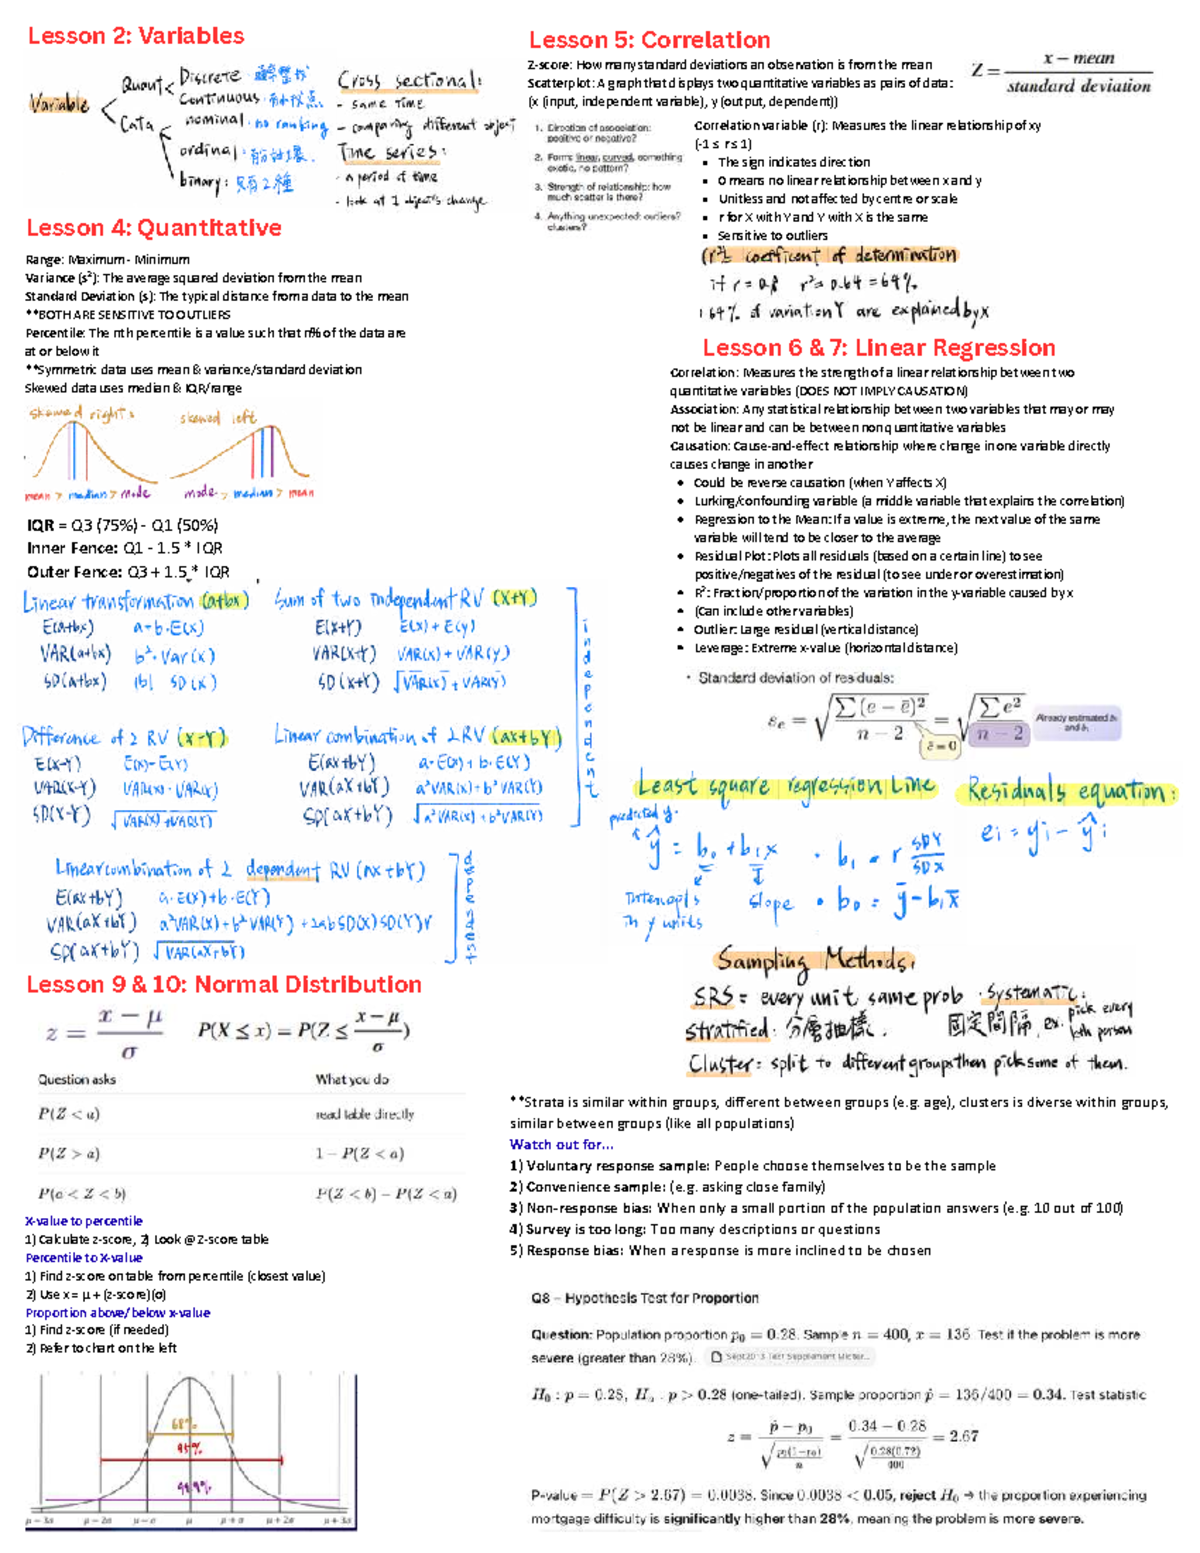 Lesson 2: Variables
Variable
Quant
Discrete
Continuous
Cata
nominal: no ranking
ordinal:
binary: 只有2種
Cross sectional:
- same time
- comparing different object
Time series:
- a period of time
- look at 1 object's change
Lesson 4: Quantitative
Range: Maximum - Minimum
Variance (s²): The average squared deviation from the mean
Standard Deviation (s): The typical distance from a data to the mean
**BOTH ARE SENSITIVE TO OUTLIERS
Percentile: The nth percentile is a value such that n% of the data are
at or below it
**Symmetric data uses mean & variance/standard deviation
Skewed data uses median & IQR/range
skewed right:
skewed left
mean > median > mode
mode > median > mean
IQR = Q3 (75%) - Q1 (50%)
Inner Fence: Q1 - 1.5 * IQR
Outer Fence: Q3 + 1.5 * IQR
Lesson 5: Correlation
Z-score: How many standard deviations an observation is from the mean
Scatterplot: A graph that displays two quantitative variables as pairs of data:
(x (input, independent variable), y (output, dependent))
Z = x − mean / standard deviation
1. Direction of association:
positive or negative?
2. Form: linear, curved, something
exotic, no pattern?
3. Strength of relationship: how
much scatter is there?
4. Anything unexpected: outliers?
clusters?
Correlation variable (r): Measures the linear relationship of xy
(-1 ≤ r ≤ 1)
The sign indicates direction
0 means no linear relationship between x and y
Unitless and not affected by centre or scale
r for X with Y and Y with X is the same
Sensitive to outliers
(r²): coefficient of determination
if r = 0.8 r² = 0.64 = 64%
64% of variation Y are explained by x
Lesson 6 & 7: Linear Regression
Correlation: Measures the strength of a linear relationship between two
quantitative variables (DOES NOT IMPLY CAUSATION)
Association: Any statistical relationship between two variables that may or may
not be linear and can be between non quantitative variables
Causation: Cause-and-effect relationship where change in one variable directly
causes change in another
Could be reverse causation (when Y affects X)
Lurking/confounding variable (a middle variable that explains the correlation)
Regression to the Mean: If a value is extreme, the next value of the same
variable will tend to be closer to the average
Residual Plot: Plots all residuals (based on a certain line) to see
positive/negatives of the residual (to see under or overestimation)
R²: Fraction/proportion of the variation in the y-variable caused by x
(Can include other variables)
Outlier: Large residual (vertical distance)
Leverage: Extreme x-value (horizontal distance)
Standard deviation of residuals:
sₑ = √(∑(e − ē)² / n − 2) = √(∑e² / n − 2)
ē = 0
Already estimated b₀
and b₁
Linear transformation (a+bx)
E(a+bx) a+b·E(x)
VAR(a+bx) b²·Var(x)
SD(a+bx) |b| SD(x)
Sum of two independent RV (X+Y)
E(X+Y) E(x) + E(y)
VAR(X+Y) VAR(x) + VAR(y)
SD(X+Y) √VAR(X) + VAR(Y)
Difference of 2 RV (X-Y)
E(X-Y) E(X)-E(Y)
VAR(X-Y) VAR(X) · VAR(X)
SD(X-Y) √VAR(X)+VAR(Y)
Linear combination of 2 RV (ax+bY)
E(ax+bY) a·E(X) + b·E(Y)
VAR(aX+bY) a²VAR(X) + b²VAR(Y)
SD(aX+bY) √a²VAR(X) + b²VAR(Y)
independent
Linear combination of 2 dependent RV (ax+bY)
E(ax+bY) a·E(X)+b·E(Y)
VAR(aX+bY) a²VAR(X) + b²VAR(Y) + 2abSD(X)SD(Y)r
SD(aX+bY) √VAR(aX+bY)
dependent
Least square regression Line
predicted y
ŷ = b₀ + b₁x
intercepts
in y units
slope
b₁ = r SDY / SDX
b₀ = ȳ - b₁x̄
Residuals equation:
ei = yi - ŷi
Sampling Methods:
SRS = every unit same prob
Systematic:
固定間隔, ex. pick every
person
Stratified: 分層抽樣.
Cluster: split to different groups then pick some of them.
**Strata is similar within groups, different between groups (e.g. age), clusters is diverse within groups,
similar between groups (like all populations)
Watch out for...
1) Voluntary response sample: People choose themselves to be the sample
2) Convenience sample: (e.g. asking close family)
3) Non-response bias: When only a small portion of the population answers (e.g. 10 out of 100)
4) Survey is too long: Too many descriptions or questions
5) Response bias: When a response is more inclined to be chosen
Lesson 9 & 10: Normal Distribution
z = x − μ / σ
P(X ≤ x) = P(Z ≤ x−μ / σ)
Question asks What you do
P(Z < a) read table directly
P(Z > a) 1 − P(Z < a)
P(a < Z < b) P(Z < b) − P(Z < a)
X-value to percentile
1) Calculate z-score, 2) Look @ Z-score table
Percentile to X-value
1) Find z-score on table from percentile (closest value)
2) Use x = μ + (z-score)(σ)
Proportion above/below x-value
1) Find z-score (if needed)
2) Refer to chart on the left
68%
95%
99.9%
μ − 3σ μ − 2σ μ − σ μ μ + σ μ + 2σ μ + 3σ
Q8 – Hypothesis Test for Proportion
Question: Population proportion p₀ = 0.28. Sample n = 400, x = 136. Test if the problem is more
severe (greater than 28%).
H₀ : p = 0.28, Hₐ : p > 0.28 (one-tailed). Sample proportion p̂ = 136/400 = 0.34. Test statistic
z = p̂ − p₀ / √(p₀(1−p₀) / n) = 0.34 − 0.28 / √(0.28(0.72) / 400) = 2.67
P-value = P(Z > 2.67) = 0.0038. Since 0.0038 < 0.05, reject H₀ → the proportion experiencing
mortgage difficulty is significantly higher than 28%, meaning the problem is more severe.